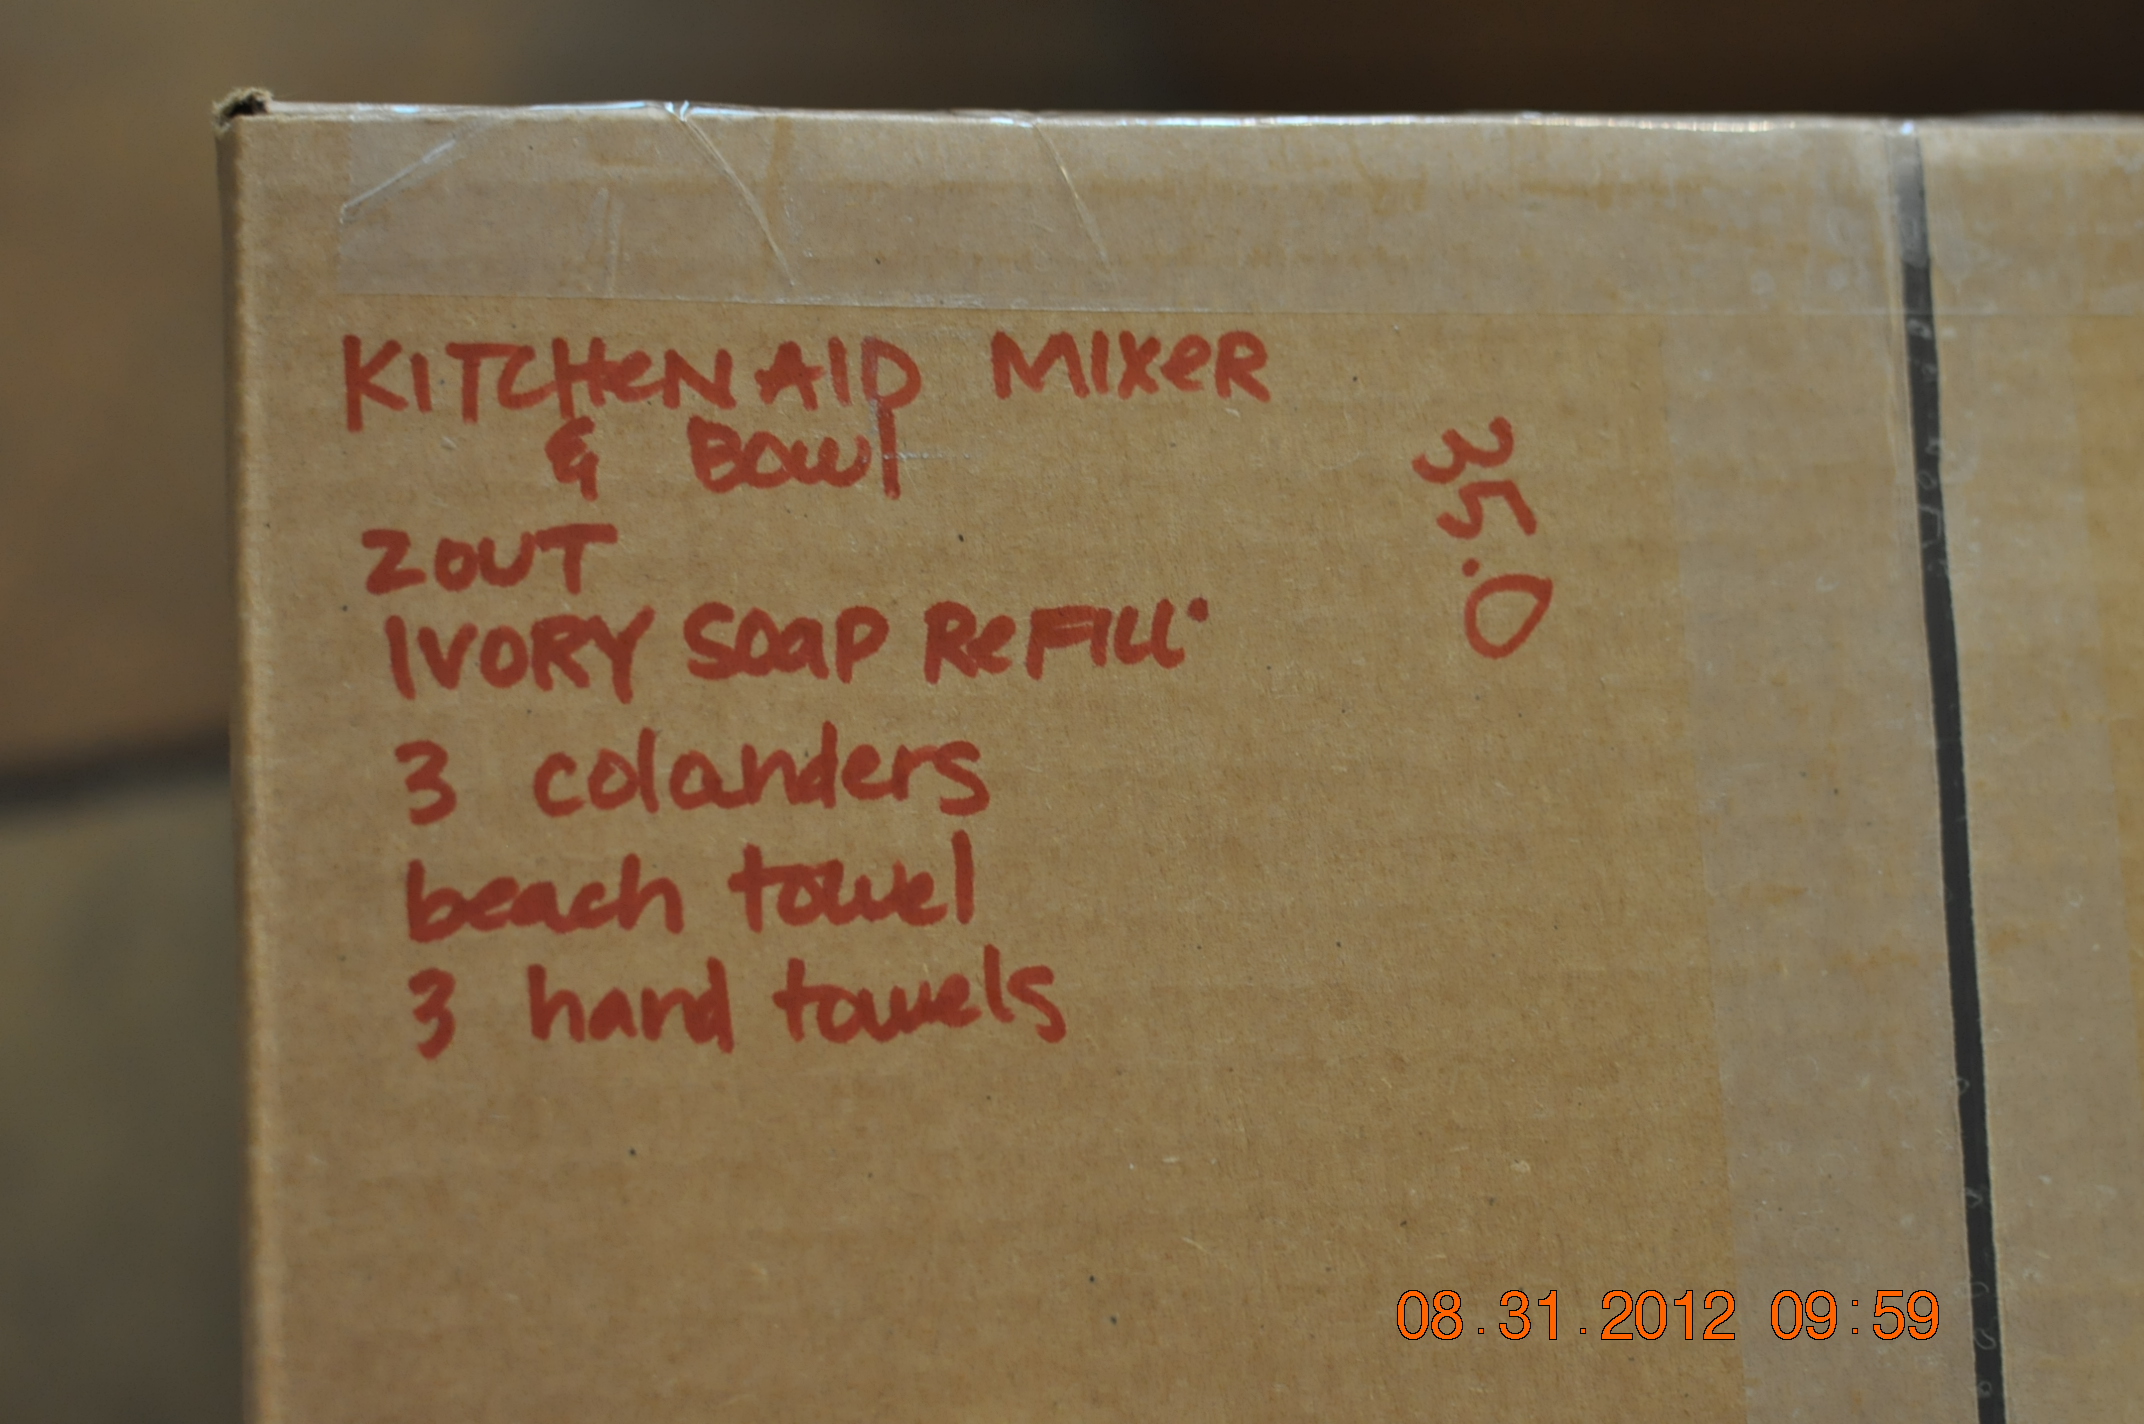 KITCHeN AID MIXeR
& BOwl
ZOUT
IVORY SOaP ReFILL
3 colanders
beach towel
3 hand towels
35.0
08.31.2012 09:59